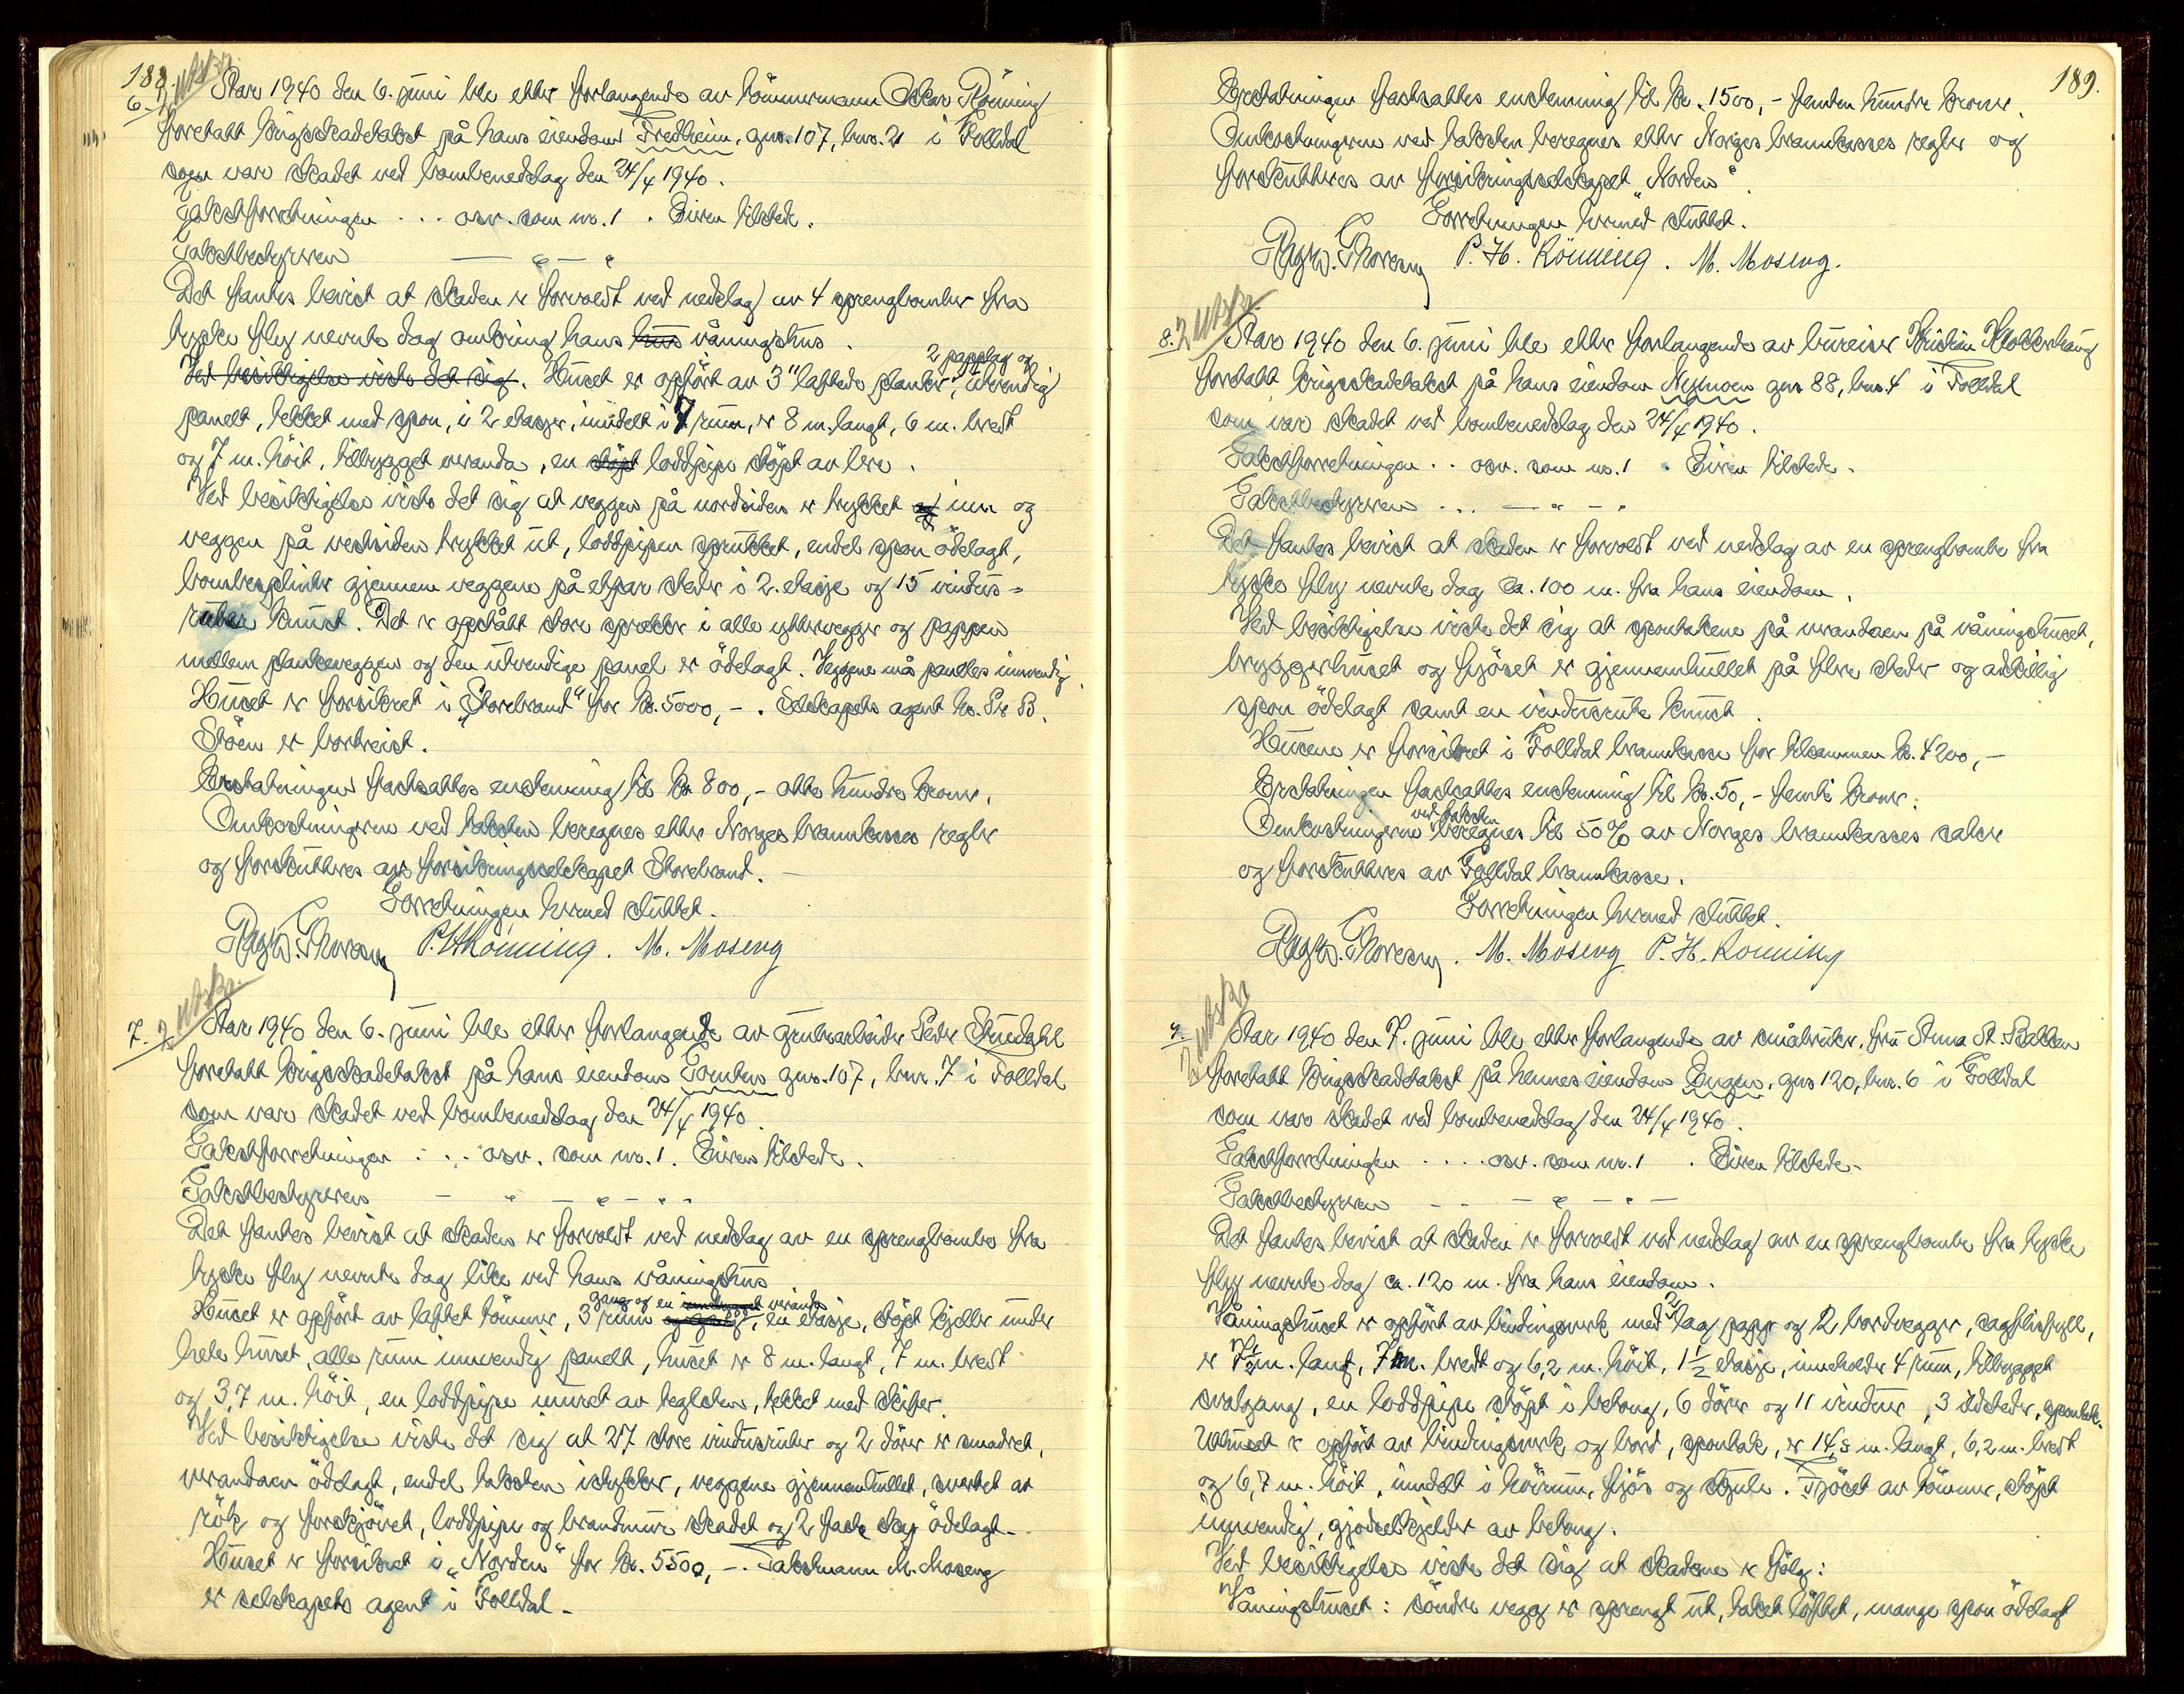 188.
6.
År 1940 den 6. juni ble etter forlangende av tömmermann Oskar Rönning
foretatt krigsskadetakst på hans eiendom Fredheim, gnr. 107, bnr. 21 i Folldal
som var skadet ved bombenedslag den 24/4 1940.
Takstforretningen ... osv. som nr. 1. Eieren tilstede.
Takstbestyreren — " — "
Det fantes bevist at skaden er forvoldt ved nedslag av 4 sprengbomber fra
tyske fly nevnte dag omkring hans hus våningshus.
Ved besiktigelse viste det sig. Huset er opfört av 3" laftede planker, 2 papplag og utvendig
panelt, tekket med spon, i 2 etasjer, inndelt i 7 rum, er 8 m. langt, 6 m. bredt
og 7 m. höit, tilbygget veranda, en stöpt loddpipe stöpt av lere.
Ved besiktigelse viste det sig at veggen på nordsiden er trykket og inn og
veggen på vestsiden trykket ut, loddpipen sprukket, endel spon ödelagt,
bombesplinter gjennem veggene på etpar steder i 2. etasje og 15 vindus-
ruter knust. Det er opstått store sprekker i alle yttervegger og pappen
mellem plankeveggen og den utvendige panel er ödelagt. Veggene må panelles innvendig.
Huset er forsikret i "Storebrand" for kr. 5000,-. Selskapets agent hr. Per B.
Stöen er bortreist.
Erstatningen fastsattes enstemmig til kr. 800,- åtte hundre kroner.
Omkostningerne ved taksten beregnes etter Norges brannkasses regler
og forskutteres av forsikringsselskapet Storebrand.
Forretningen hermed sluttet.
Ragnv. Thoresen P. H. Rönning. M. Moseng
7.
År 1940 den 6. juni ble etter forlangende av grubearbeider Peder Stuedahl
foretatt krigsskadetakst på hans eiendom Tomten gnr. 107, bnr. 7 i Folldal
som var skadet ved bombenedslag den 24/4 1940.
Takstforretningen ... osv. som nr. 1. Eieren tilstede.
Takstbestyreren — " — " — "
Det fantes bevist at skaden er forvoldt ved nedslag av en sprengbombe fra
tyske fly nevnte dag like ved hans våningshus.
Huset er opfört av laftet tömmer, 3 rum gang og en veranda, en etasje, stöpt kjeller under
hele huset, alle rum innvendig panelt, huset er 8 m. langt, 7 m. bredt
og 3,7 m. höit, en loddpipe muret av teglsten, tekket med skifer.
Ved besiktigelse viste det sig at 27 store vindusruter og 2 dörer er smadret,
verandaen ödelagt, endel taksten istykker, veggene gjennemhullet, svertet av
rök og forskjövet, loddpipe og brandmur skadet og 2 faste skap ödelagt.
Huset er forsikret i "Norden" for kr. 5500,-. Takstmann M. Moseng
er selskapets agent i Folldal.
189.
Erstatningen fastsattes enstemmig til kr. 1500,- femten hundre kroner.
Omkostningerne ved taksten beregnes etter Norges brannkasses regler og
forskutteres av forsikringsselskapet "Norden".
Forretningen hermed sluttet.
Ragnv. Thoresen P. H. Rönning. M. Moseng.
8.
År 1940 den 6. juni ble etter forlangende av bureiser Kristian Klokkerhaug
foretatt krigsskadetakst på hans eiendom Nymoen gnr 88, bnr. 4 i Folldal
som var skadet ved bombenedslag den 24/4 1940.
Takstforretningen .. osv. som nr. 1. Eieren tilstede.
Takstbestyreren ... — " — "
Det fantes bevist at skaden er forvoldt ved nedslag av en sprengbombe fra
tyske fly nevnte dag ca. 100 m. fra hans eiendom.
Ved besiktigelse viste det sig at spontakene på verandaen på våningshuset,
bryggerhuset og fjöset er gjennemhullet på flere steder og adskillig
spon ödelagt samt en vindusrute knust.
Husene er forsikret i Folldal brannkasse for tilsammen kr. 4200,-
Erstatningen fastsattes enstemmig til kr. 50,- femti kroner.
Omkostningerne ved taksten beregnes til 50% av Norges brannkasses satser
og forskutteres av Folldal brannkasse.
Forretningen hermed sluttet.
Ragnv. Thoresen. M. Moseng P. H. Rönning
9.
År 1940 den 7. juni ble etter forlangende av småbruker, fru Anna St. Bakken
foretatt krigsskadetakst på hennes eiendom Engen, gnr 120, bnr. 6 i Folldal
som var skadet ved bombenedslag den 24/4 1940.
Takstforretningen .... osv. som nr. 1. Eieren tilstede.
Takstbestyreren — — " — " —
Det fantes bevist at skaden er forvoldt ved nedslag av en sprengbombe fra tyske
fly nevnte dag ca. 120 m. fra hans eiendom.
Våningshuset er opfört av bindingsverk med 2 lag papp og 2 bordvegger, sagflisfyll,
er 7 1/2 m. langt, 7 m. bredt og 6,2 m. höit, 1 1/2 etasje, inneholder 4 rum, tilbygget
svalgang, en loddpipe stöpt i betong, 6 dörer og 11 vinduer, 3 ildsteder, spontak.
Uthuset er opfört av bindingsverk og bord, spontak, er 14,8 m. langt, 6,2 m. bredt
og 6,7 m. höit, inndelt i höirum, fjös og skjule. Fjöset av tömmer, stöpt
innvendig, gjödselkjelder av betong.
Ved besiktigelse viste det sig at skadene er fölg:
Våningshuset: söndre vegg er sprengt ut, taket löftet, mange spon ödelagt